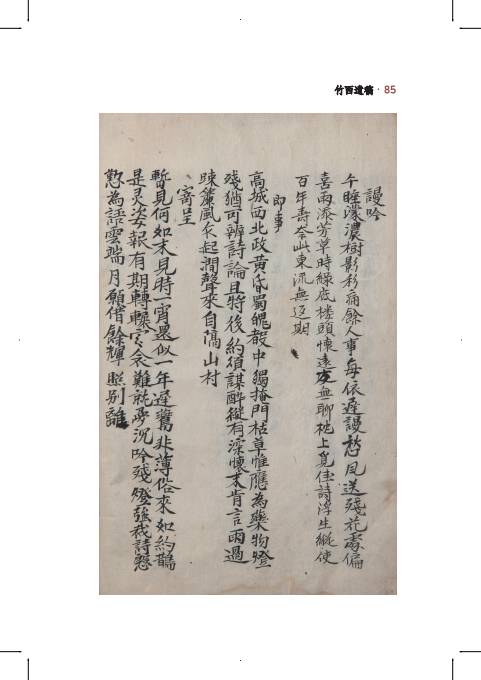 竹西遺稿 · 85
謾吟
午睡濛濃樹影移病餘人事每依遲謾愁風送殘花處偏
喜雨添芳草時綠底樓頭懷遠友無聊枕上覓佳詩浮生縱使
百年壽奈此東流無返期
即事
高城西北政黃昏蜀魄聲中獨掩門枯草惟應為藥物燈
殘猶可辨詩論且将後約須謀醉縱有深懷未肯言雨過
疎簾風衣起澗聲來自隔山村
寄呈
暫見何如未見時一宵還似一年遲舊非薄俗來如約鵲
是灵姿報有期轉輾它念難能夢沉吟殘燈強裁詩愁
懃為語雲端月願借餘輝照別離